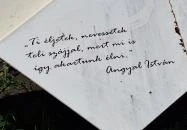 „Ti éljetek, nevessetek
teli szájjal, mert mi is
így akartunk élni."
Angyal István